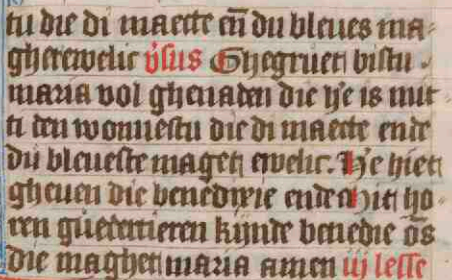 tu die di maecte eñ du bleues ma-
ghetewelic v̾sus Ghegruet bistu
maria vol ghenaden die h̾e is mit
ti den wonnestu die di maecte ende
du bleueste maget ewelic. H̾e hiet
gheuen die benedixie ende mit ho-
ren guedertieren kijnde benedie o̅s
die maghet maria amen iij lesse